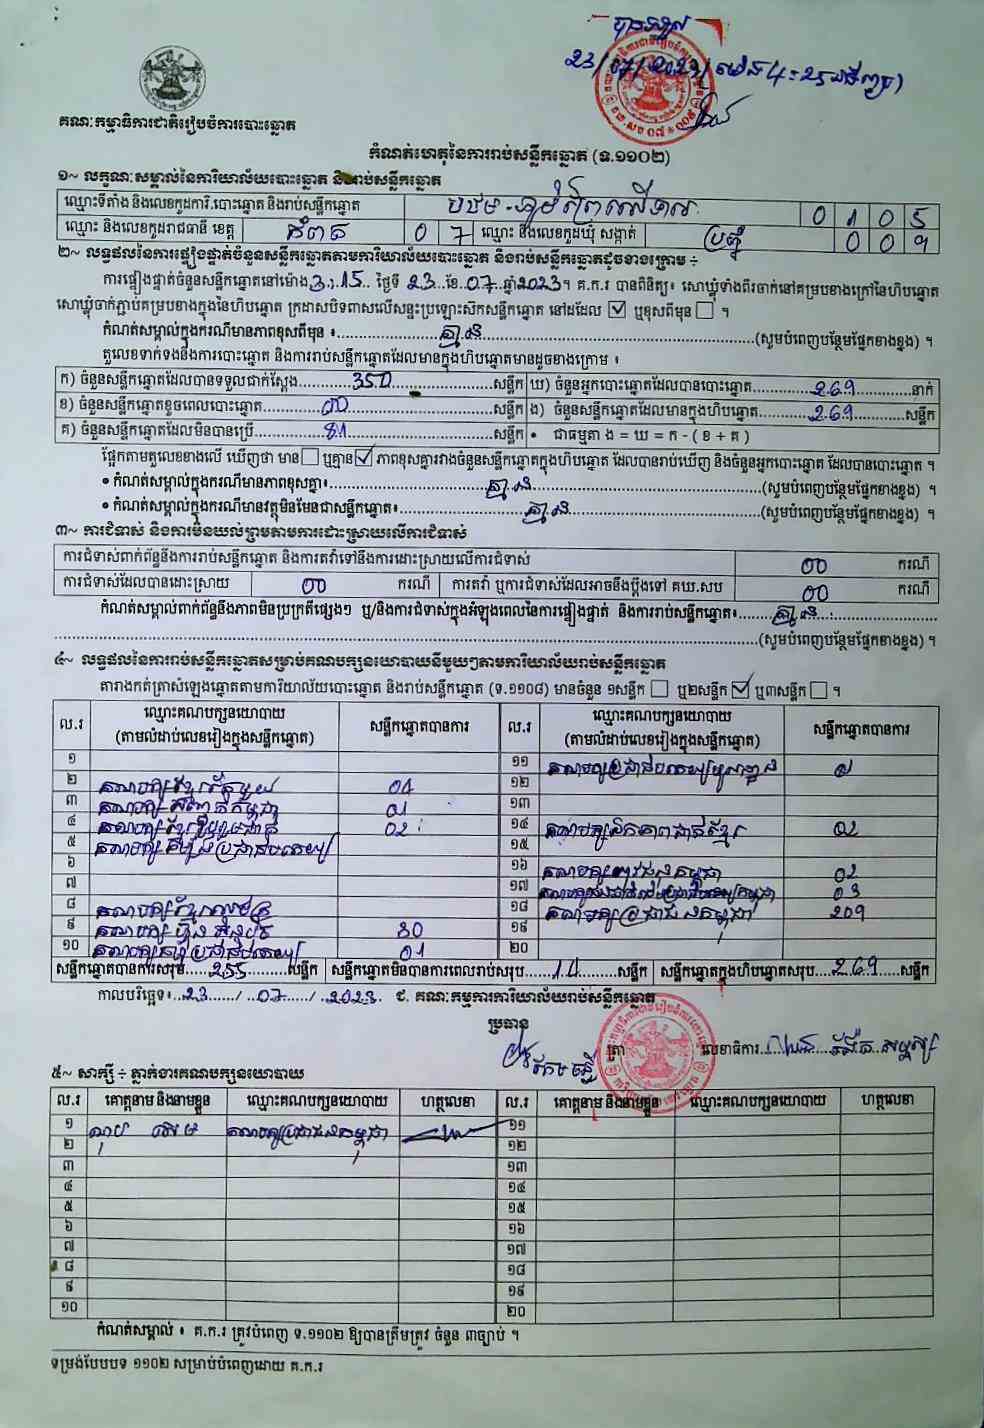 បានឃើញ
23/07/2023
គណៈកម្មាធិការជាតិរៀបចំការបោះឆ្នោត
កំណត់ហេតុនៃការរាប់សន្លឹកឆ្នោត (ទ.១១០២)
១~ លក្ខណៈសម្គាល់នៃការិយាល័យបោះឆ្នោត និងរាប់សន្លឹកឆ្នោត
ឈ្មោះទីតាំង និងលេខកូដការិ.បោះឆ្នោត និងរាប់សន្លឹកឆ្នោត 0 1 0 5
ឈ្មោះ និងលេខកូដរាជធានី ខេត្ត កំពត 0 7 ឈ្មោះ និងលេខកូដឃុំ សង្កាត់ 0 0 9
២~ លទ្ធផលនៃការផ្ទៀងផ្ទាត់ចំនួនសន្លឹកឆ្នោតតាមការិយាល័យបោះឆ្នោត និងរាប់សន្លឹកឆ្នោតដូចខាងក្រោម ÷
ការផ្ទៀងផ្ទាត់ចំនួនសន្លឹកឆ្នោតនៅម៉ោង 3:15 ថ្ងៃទី 23 ខែ 07 ឆ្នាំ 2023។ គ.ក.រ បានពិនិត្យ៖ សោឃ្លុំទាំងពីរចាក់នៅគម្របខាងក្រៅនៃហិបឆ្នោត
សោឃ្លុំចាក់ភ្ជាប់គម្របខាងក្នុងនៃហិបឆ្នោត ក្រដាសបិទពាសលើសន្ទះប្រឡោះស៊កសន្លឹកឆ្នោត នៅដដែល ☑ ឬខុសពីមុន ☐ ។
កំណត់សម្គាល់ក្នុងករណីមានភាពខុសពីមុន ៖ គ្មាន (សូមបំពេញបន្ថែមផ្នែកខាងខ្នង) ។
តួលេខទាក់ទងនឹងការបោះឆ្នោត និងការរាប់សន្លឹកឆ្នោតដែលមានក្នុងហិបឆ្នោតមានដូចខាងក្រោម ៖
ក) ចំនួនសន្លឹកឆ្នោតដែលបានទទួលជាក់ស្តែង 350 សន្លឹក ឃ) ចំនួនអ្នកបោះឆ្នោតដែលបានបោះឆ្នោត 269 នាក់
ខ) ចំនួនសន្លឹកឆ្នោតខូចពេលបោះឆ្នោត 00 សន្លឹក ង) ចំនួនសន្លឹកឆ្នោតដែលមានក្នុងហិបឆ្នោត 269 សន្លឹក
គ) ចំនួនសន្លឹកឆ្នោតដែលមិនបានប្រើ 81 សន្លឹក • ជាធម្មតា ង = ឃ = ក - ( ខ + គ )
ផ្អែកតាមតួលេខខាងលើ ឃើញថា មាន ☐ ឬគ្មាន ☑ ភាពខុសគ្នារវាងចំនួនសន្លឹកឆ្នោតក្នុងហិបឆ្នោត ដែលបានរាប់ឃើញ និងចំនួនអ្នកបោះឆ្នោត ដែលបានបោះឆ្នោត ។
• កំណត់សម្គាល់ក្នុងករណីមានភាពខុសគ្នា៖ គ្មាន (សូមបំពេញបន្ថែមផ្នែកខាងខ្នង) ។
• កំណត់សម្គាល់ក្នុងករណីមានវត្ថុមិនមែនជាសន្លឹកឆ្នោត៖ គ្មាន (សូមបំពេញបន្ថែមផ្នែកខាងខ្នង) ។
៣~ ការជំទាស់ និងការមិនយល់ព្រមតាមការដោះស្រាយលើការជំទាស់
ការជំទាស់ពាក់ព័ន្ធនឹងការរាប់សន្លឹកឆ្នោត និងការតវ៉ាទៅនឹងការដោះស្រាយលើការជំទាស់ 00 ករណី
ការជំទាស់ដែលបានដោះស្រាយ 00 ករណី ការតវ៉ា ឬការជំទាស់ដែលអាចនឹងប្តឹងទៅ គឃ.សប 00 ករណី
កំណត់សម្គាល់ពាក់ព័ន្ធនឹងភាពមិនប្រក្រតីផ្សេងៗ ឬ/និងការជំទាស់ក្នុងអំឡុងពេលនៃការផ្ទៀងផ្ទាត់ និងការរាប់សន្លឹកឆ្នោត៖ គ្មាន
(សូមបំពេញបន្ថែមផ្នែកខាងខ្នង) ។
៤~ លទ្ធផលនៃការរាប់សន្លឹកឆ្នោតសម្រាប់គណបក្សនយោបាយនីមួយៗតាមការិយាល័យរាប់សន្លឹកឆ្នោត
តារាងកត់ត្រាសំឡេងឆ្នោតតាមការិយាល័យបោះឆ្នោត និងរាប់សន្លឹកឆ្នោត (ទ.១១០៨) មានចំនួន ១សន្លឹក ☐ ឬ២សន្លឹក ☑ ឬ៣សន្លឹក ☐ ។
ល.រ ឈ្មោះគណបក្សនយោបាយ (តាមលំដាប់លេខរៀងក្នុងសន្លឹកឆ្នោត) សន្លឹកឆ្នោតបានការ ល.រ ឈ្មោះគណបក្សនយោបាយ (តាមលំដាប់លេខរៀងក្នុងសន្លឹកឆ្នោត) សន្លឹកឆ្នោតបានការ
១ ១១
២ គណបក្សខ្មែររួបរួម 01 ១២
៣ 01 ១៣
៤ 02 ១៤ គណបក្សឯកភាពជាតិខ្មែរ 02
៥ ១៥
៦ ១៦ 02
៧ ១៧ 03
៨ គណបក្សខ្មែរអភិវឌ្ឍ ១៨ គណបក្សប្រជាជនកម្ពុជា 209
៩ គណបក្សហ៊្វុនស៊ិនប៉ិច 30 ១៩
១០ 01 ២០
សន្លឹកឆ្នោតបានការសរុប 255 សន្លឹក សន្លឹកឆ្នោតមិនបានការពេលរាប់សរុប 14 សន្លឹក សន្លឹកឆ្នោតក្នុងហិបឆ្នោតសរុប 269 សន្លឹក
កាលបរិច្ឆេទ៖ 23 / 07 / 2023 ជ. គណៈកម្មការការិយាល័យរាប់សន្លឹកឆ្នោត
ប្រធាន
ត្រា លេខាធិការ
៥~ សាក្សី ÷ ភ្នាក់ងារគណបក្សនយោបាយ
ល.រ គោត្តនាម និងនាមខ្លួន ឈ្មោះគណបក្សនយោបាយ ហត្ថលេខា ល.រ គោត្តនាម និងនាមខ្លួន ឈ្មោះគណបក្សនយោបាយ ហត្ថលេខា
១ គណបក្សប្រជាជនកម្ពុជា ១១
២ ១២
៣ ១៣
៤ ១៤
៥ ១៥
៦ ១៦
៧ ១៧
៨ ១៨
៩ ១៩
១០ ២០
កំណត់សម្គាល់ ៖ គ.ក.រ ត្រូវបំពេញ ទ.១១០២ ឱ្យបានត្រឹមត្រូវ ចំនួន ៣ច្បាប់ ។
ទម្រង់បែបបទ ១១០២ សម្រាប់បំពេញដោយ គ.ក.រ